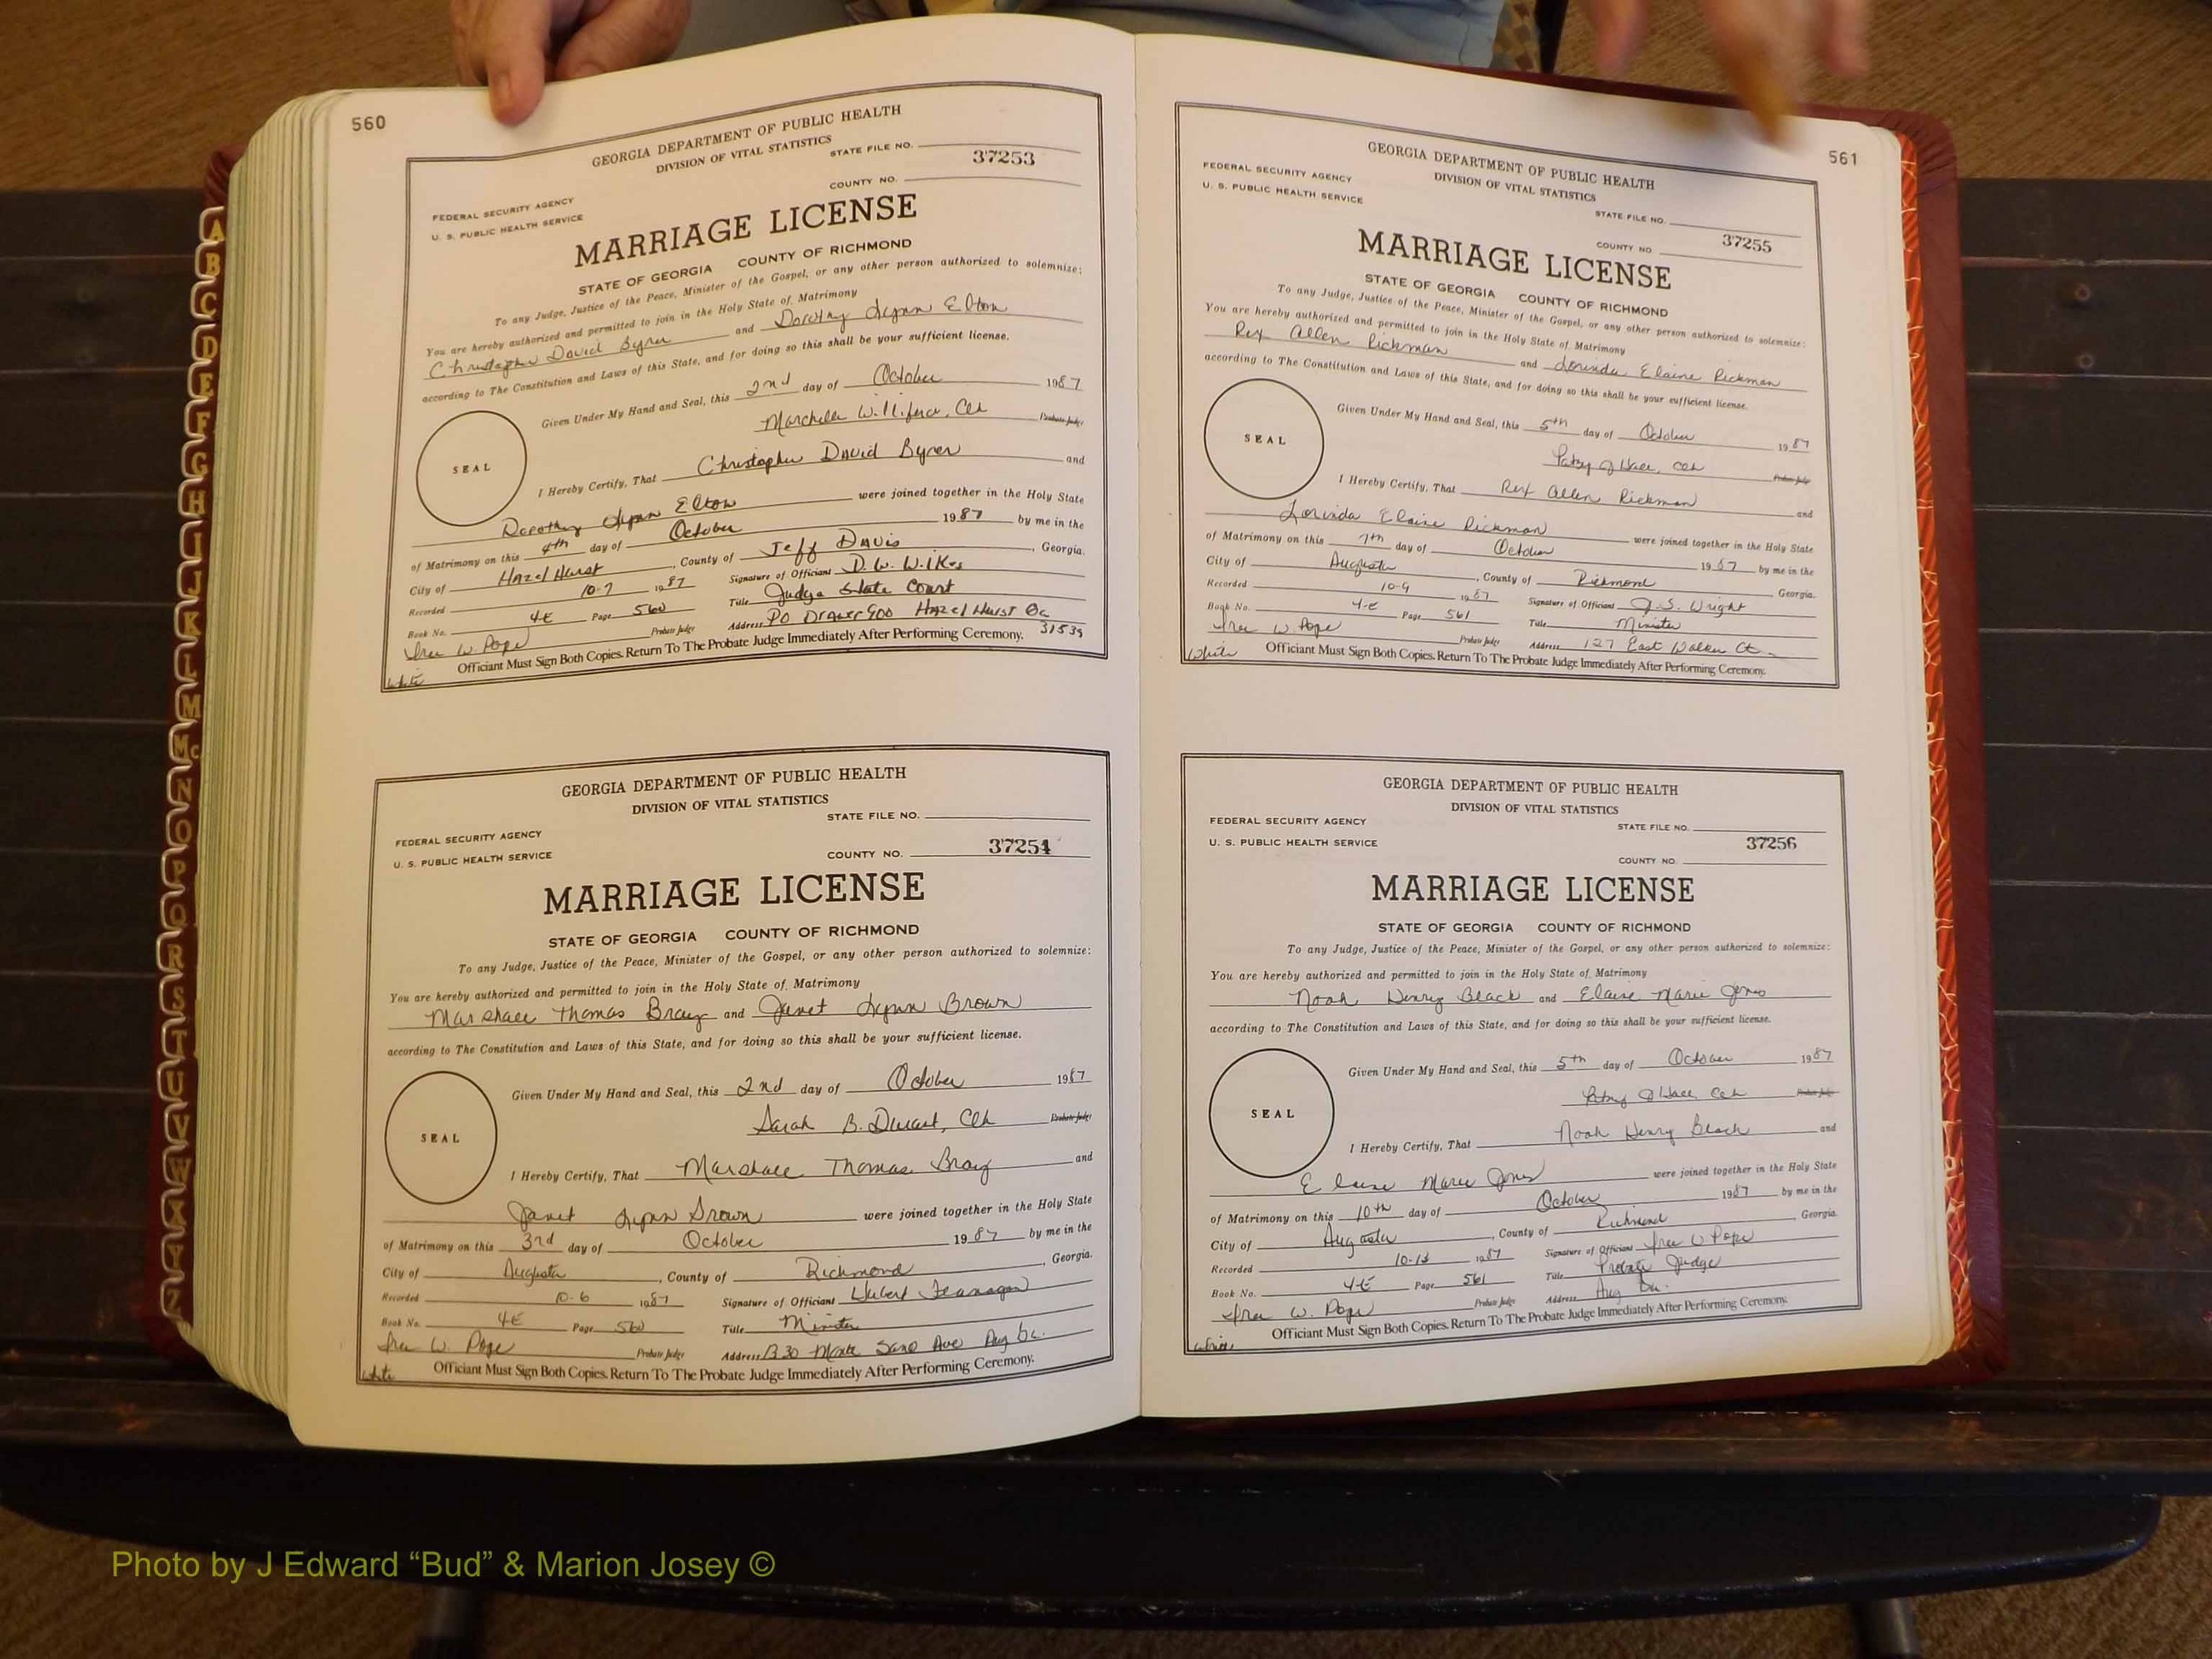 560
GEORGIA DEPARTMENT OF PUBLIC HEALTH
DIVISION OF VITAL STATISTICS
STATE FILE NO.
37253
COUNTY NO.
FEDERAL SECURITY AGENCY
U. S. PUBLIC HEALTH SERVICE
MARRIAGE LICENSE
STATE OF GEORGIA COUNTY OF RICHMOND
To any Judge, Justice of the Peace, Minister of the Gospel, or any other person authorized to solemnize:
You are hereby authorized and permitted to join in the Holy State of Matrimony
Christopher David Byrer and Dorothy Lynn Elton
according to The Constitution and Laws of this State, and for doing so this shall be your sufficient license.
Given Under My Hand and Seal, this 2nd day of October 1987
Probate Judge
SEAL
I Hereby Certify, That Christopher David Byrer and
Dorothy Lynn Elton were joined together in the Holy State
of Matrimony on this 4th day of October 1987 by me in the
City of Hazelhurst, County of Jeff Davis, Georgia.
Recorded 10-7 1987 Signature of Officiant D. W. Wilkes
Book No. 4E Page 560 Title Judge State Court
Probate Judge Address PO Drawer 900 Hazelhurst Ga 31539
W. Pope
Officiant Must Sign Both Copies. Return To The Probate Judge Immediately After Performing Ceremony.
White
GEORGIA DEPARTMENT OF PUBLIC HEALTH
DIVISION OF VITAL STATISTICS
STATE FILE NO.
FEDERAL SECURITY AGENCY
U. S. PUBLIC HEALTH SERVICE
COUNTY NO. 37254
MARRIAGE LICENSE
STATE OF GEORGIA COUNTY OF RICHMOND
To any Judge, Justice of the Peace, Minister of the Gospel, or any other person authorized to solemnize:
You are hereby authorized and permitted to join in the Holy State of Matrimony
Marshall Thomas Bray and Janet Lynn Brown
according to The Constitution and Laws of this State, and for doing so this shall be your sufficient license.
Given Under My Hand and Seal, this 2nd day of October 1987
Sarah B. Probate Judge
SEAL
I Hereby Certify, That Marshall Thomas Bray and
Janet Lynn Brown were joined together in the Holy State
of Matrimony on this 3rd day of October 1987 by me in the
City of Augusta, County of Richmond, Georgia.
Recorded 10-6 1987 Signature of Officiant Hubert Flanagan
Book No. 4E Page 560 Title Minister
W. Pope Probate Judge Address 1330 Monte Sano Ave Aug Ga.
Officiant Must Sign Both Copies. Return To The Probate Judge Immediately After Performing Ceremony.
White
561
GEORGIA DEPARTMENT OF PUBLIC HEALTH
DIVISION OF VITAL STATISTICS
FEDERAL SECURITY AGENCY
U. S. PUBLIC HEALTH SERVICE
STATE FILE NO.
COUNTY NO. 37255
MARRIAGE LICENSE
STATE OF GEORGIA COUNTY OF RICHMOND
To any Judge, Justice of the Peace, Minister of the Gospel, or any other person authorized to solemnize:
You are hereby authorized and permitted to join in the Holy State of Matrimony
Rex Allen Rickman and Lorinda Elaine Rickman
according to The Constitution and Laws of this State, and for doing so this shall be your sufficient license.
Given Under My Hand and Seal, this 5th day of October 1987
Probate Judge
SEAL
I Hereby Certify, That Rex Allen Rickman and
Lorinda Elaine Rickman were joined together in the Holy State
of Matrimony on this 7th day of October 1987 by me in the
City of Augusta, County of Richmond Georgia.
Recorded 10-9 1987 Signature of Officiant J. S. Wright
Book No. 4-E Page 561 Title Minister
W. Pope Probate Judge Address 127 East Walker Ct.
Officiant Must Sign Both Copies. Return To The Probate Judge Immediately After Performing Ceremony.
White
GEORGIA DEPARTMENT OF PUBLIC HEALTH
DIVISION OF VITAL STATISTICS
FEDERAL SECURITY AGENCY
STATE FILE NO.
U. S. PUBLIC HEALTH SERVICE
37256
COUNTY NO.
MARRIAGE LICENSE
STATE OF GEORGIA COUNTY OF RICHMOND
To any Judge, Justice of the Peace, Minister of the Gospel, or any other person authorized to solemnize:
You are hereby authorized and permitted to join in the Holy State of Matrimony
Noah Henry Black and Elaine Marie Jones
according to The Constitution and Laws of this State, and for doing so this shall be your sufficient license.
Given Under My Hand and Seal, this 5th day of October 1987
Probate Judge
SEAL
I Hereby Certify, That Noah Henry Black and
Elaine Marie Jones were joined together in the Holy State
of Matrimony on this 10th day of October 1987 by me in the
City of Augusta, County of Richmond Georgia.
Recorded 10-13 1987 Signature of Officiant W Pope
Book No. 4-E Page 561 Title Probate Judge
W. Pope Probate Judge Address Aug Ga.
Officiant Must Sign Both Copies. Return To The Probate Judge Immediately After Performing Ceremony.
White
A
B
C
D
E
F
G
H
I
J
K
L
M
Mc
N
O
P
Q
R
S
T
U
V
W
X
Y
Z
Photo by J Edward “Bud” & Marion Josey ©